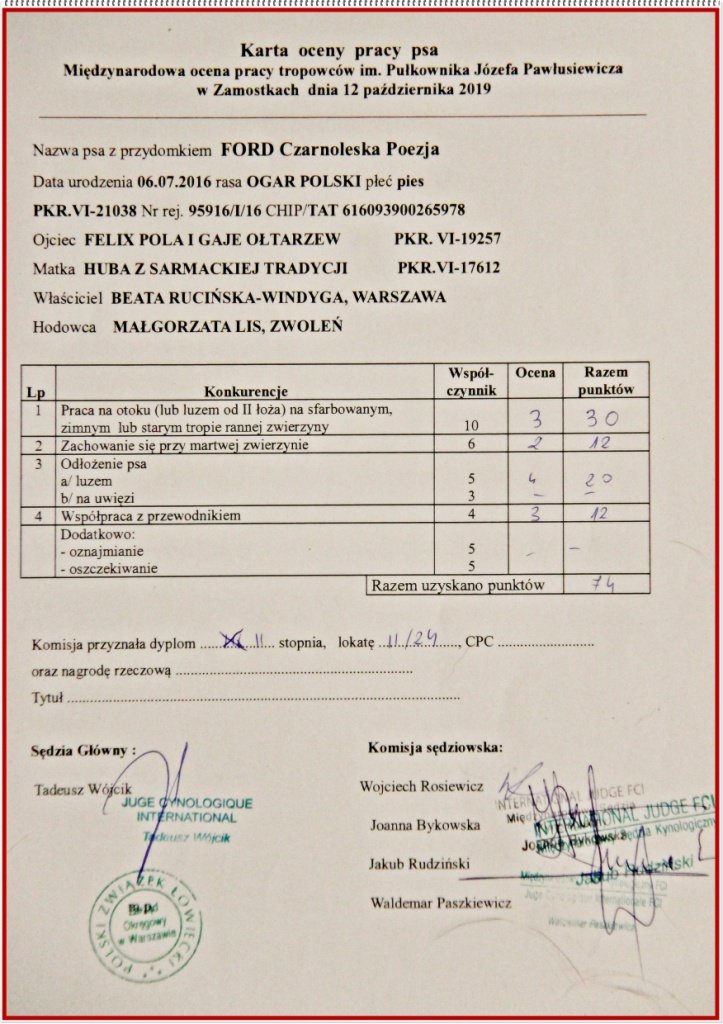 Karta oceny pracy psa
Międzynarodowa ocena pracy tropowców im. Pułkownika Józefa Pawłusiewicza
w Zamostkach dnia 12 października 2019
Nazwa psa z przydomkiem FORD Czarnoleska Poezja
Data urodzenia 06.07.2016 rasa OGAR POLSKI płeć pies
PKR.VI-21038 Nr rej. 95916/I/16 CHIP/TAT 616093900265978
Ojciec FELIX POLA I GAJE OŁTARZEW PKR. VI-19257
Matka HUBA Z SARMACKIEJ TRADYCJI PKR.VI-17612
Właściciel BEATA RUCIŃSKA-WINDYGA, WARSZAWA
Hodowca MAŁGORZATA LIS, ZWOLEŃ
Lp Konkurencje Współ-czynnik Ocena Razem punktów
1 Praca na otoku (lub luzem od II łoża) na sfarbowanym,
zimnym lub starym tropie rannej zwierzyny 10 3 30
2 Zachowanie się przy martwej zwierzynie 6 2 12
3 Odłożenie psa
a/ luzem 5 4 20
b/ na uwięzi 3 – –
4 Współpraca z przewodnikiem 4 3 12
Dodatkowo:
- oznajmianie 5 - –
- oszczekiwanie 5
Razem uzyskano punktów 74
Komisja przyznała dyplom ........ II .... stopnia, lokatę ..11/24......, CPC ........................
oraz nagrodę rzeczową ............................................................
Tytuł ....................................................................................................
Sędzia Główny :
Komisja sędziowska:
Tadeusz Wójcik
JUGE CYNOLOGIQUE
INTERNATIONAL
Tadeusz Wójcik
Wojciech Rosiewicz
INTERNATIONAL JUDGE FCI
Joanna Bykowska
INTERNATIONAL JUDGE FCI
Sędzia Kynologiczny
Joanna Bykowska
Jakub Rudziński
Jakub Rudziński
Juge Cynologique Internationale FCI
Waldemar Paszkiewicz
Waldemar Paszkiewicz
POLSKI ZWIĄZEK ŁOWIECKI
m.p.
Okręgowy
w Warszawie